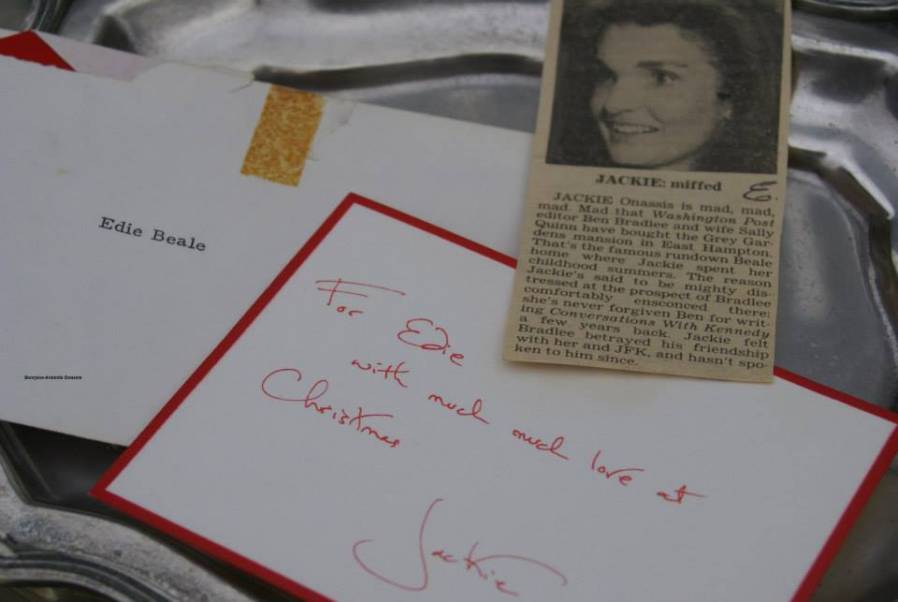 Edie Beale
For Edie
with much much love at
Christmas
Jackie
JACKIE: miffed
E
JACKIE Onassis is mad, mad,
mad. Mad that Washington Post
editor Ben Bradlee and wife Sally
Quinn have bought the Grey Gar-
dens mansion in East Hampton.
That's the famous rundown Beale
home where Jackie spent her
childhood summers. The reason
Jackie's said to be mighty dis-
tressed at the prospect of Bradlee
comfortably ensconced there:
she's never forgiven Ben for writ-
ing Conversations With Kennedy
a few years back. Jackie felt
Bradlee betrayed his friendship
with her and JFK, and hasn't spo-
ken to him since.